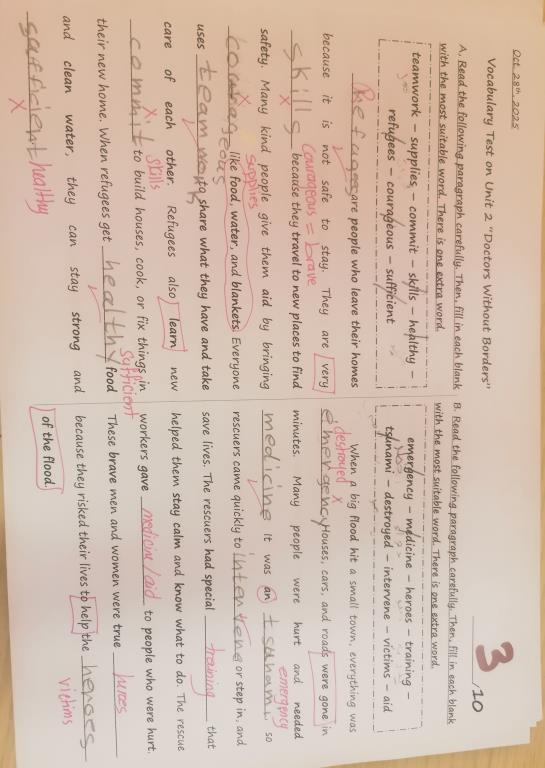 Oct 28th 2025
Vocabulary Test on Unit 2 "Doctors Without Borders"
3/10
A. Read the following paragraph carefully. Then, fill in each blank
with the most suitable word. There is one extra word.
teamwork – supplies – commit – skills – healthy –
refugees – courageous – sufficient
Refugees are people who leave their homes
because it is not safe to stay. They are very
courageous = brave
skills because they travel to new places to find
safety. Many kind people give them aid by bringing
supplies
courageous like food, water, and blankets. Everyone
uses teamwork to share what they have and take
care of each other. Refugees also learn new
skills
commit to build houses, cook, or fix things in
their new home. When refugees get healthy food
sufficient
and clean water, they can stay strong and
sufficient healthy
B. Read the following paragraph carefully. Then, fill in each blank
with the most suitable word. There is one extra word.
emergency – medicine – heroes – training –
tsunami – destroyed – intervene – victims – aid
When a big flood hit a small town, everything was
destroyed
emergency Houses, cars, and roads were gone in
minutes. Many people were hurt and needed
medicine. It was an tsunami, so
emergency
rescuers came quickly to intervene or step in, and
save lives. The rescuers had special training that
helped them stay calm and know what to do. The rescue
workers gave medicine/aid to people who were hurt.
These brave men and women were true heroes
because they risked their lives to help the heroes
victims
of the flood.